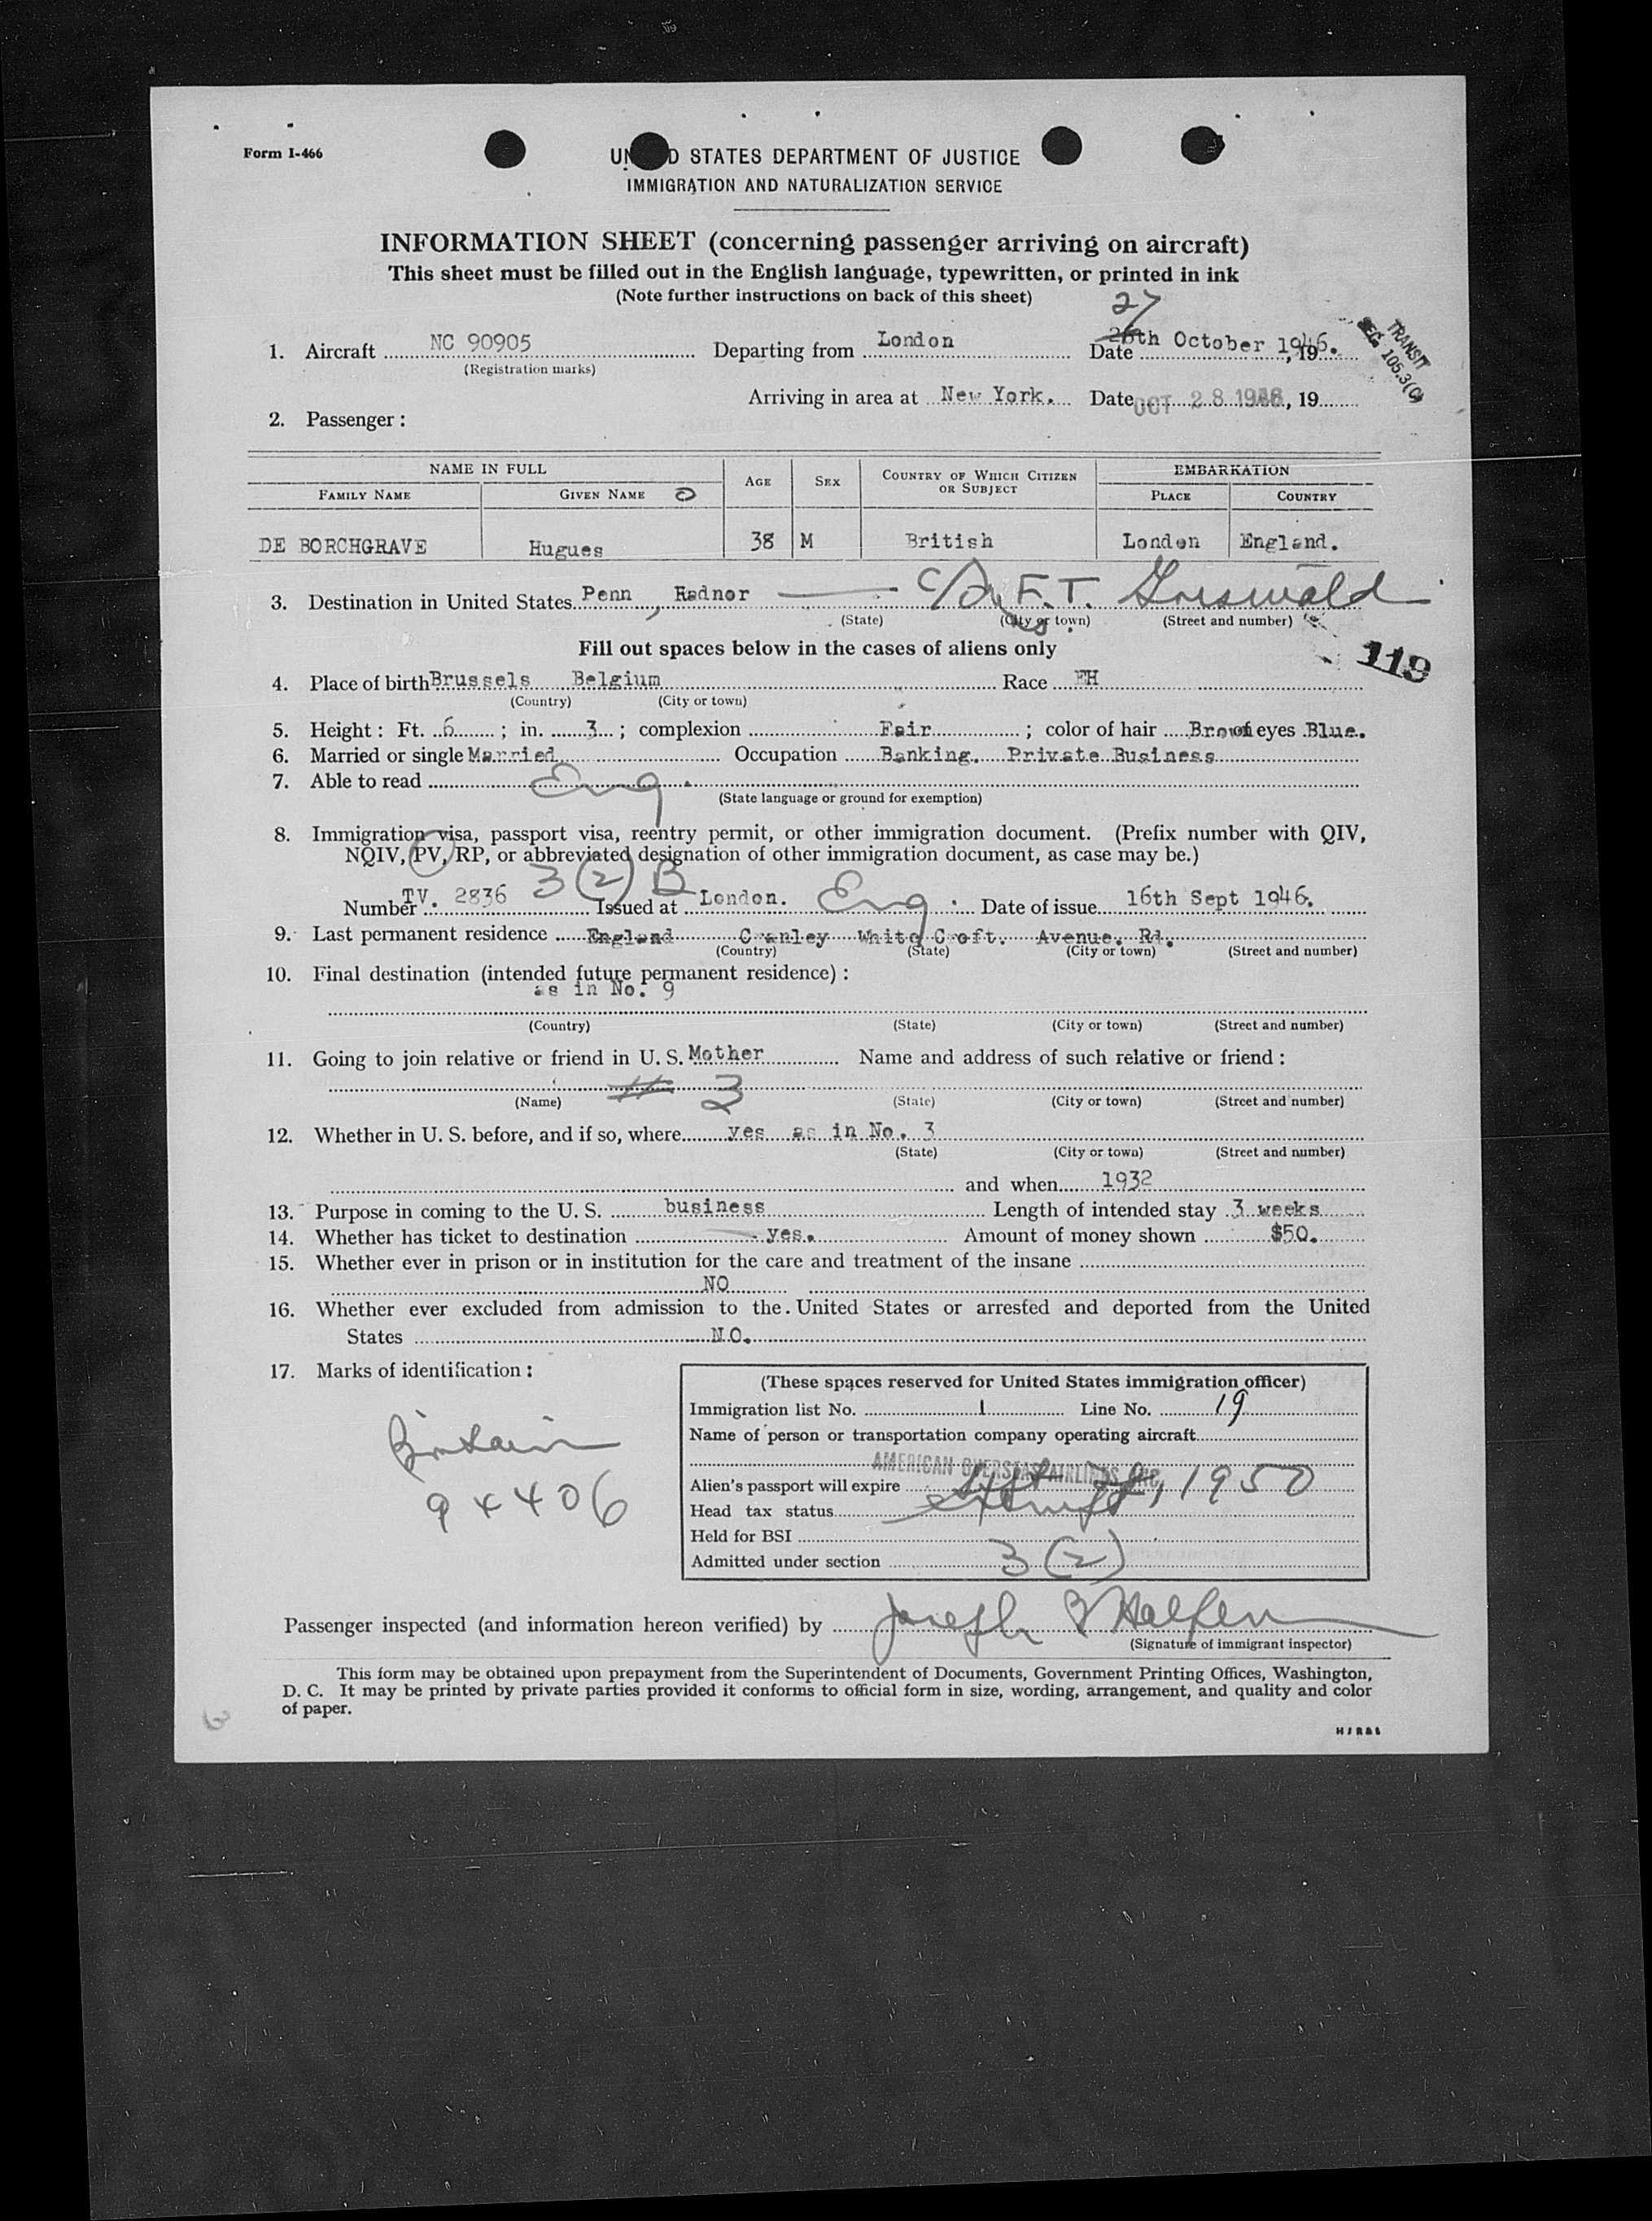 Form I-466
UN D STATES DEPARTMENT OF JUSTICE
IMMIGRATION AND NATURALIZATION SERVICE
INFORMATION SHEET (concerning passenger arriving on aircraft)
This sheet must be filled out in the English language, typewritten, or printed in ink
(Note further instructions on back of this sheet)
27
1. Aircraft NC 90905 Departing from London Date 26th October 1946. , 19
(Registration marks)
TRANSIT
SEC. 105.3(C)
Arriving in area at New York. Date OCT 28 1946, 19
2. Passenger:
NAME IN FULL AGE SEX COUNTRY OF WHICH CITIZEN OR SUBJECT EMBARKATION
FAMILY NAME GIVEN NAME PLACE COUNTRY
DE BORCHGRAVE Hugues 38 M British London England.
3. Destination in United States Penn, Radnor c/o F.T. Griswold
(State) (City or town) (Street and number)
Fill out spaces below in the cases of aliens only
119
4. Place of birth Brussels Belgium Race
(Country) (City or town)
5. Height: Ft. 6 ; in. 3 ; complexion Fair ; color of hair Brown eyes Blue.
6. Married or single Married. Occupation Banking. Private Business
7. Able to read Eng.
(State language or ground for exemption)
8. Immigration visa, passport visa, reentry permit, or other immigration document. (Prefix number with QIV,
NQIV, PV, RP, or abbreviated designation of other immigration document, as case may be.)
3 (2) B
Number TV. 2836 Issued at London. Eng. Date of issue 16th Sept 1946.
9. Last permanent residence England Cranley White Croft. Avenue. Rd.
(Country) (State) (City or town) (Street and number)
10. Final destination (intended future permanent residence):
as in No. 9
(Country) (State) (City or town) (Street and number)
11. Going to join relative or friend in U. S. Mother Name and address of such relative or friend:
# 3
(Name) (State) (City or town) (Street and number)
12. Whether in U. S. before, and if so, where yes as in No. 3
(State) (City or town) (Street and number)
and when 1932
13. Purpose in coming to the U. S. business Length of intended stay 3 weeks
14. Whether has ticket to destination yes. Amount of money shown $50.
15. Whether ever in prison or in institution for the care and treatment of the insane
NO
16. Whether ever excluded from admission to the United States or arrested and deported from the United
States NO.
17. Marks of identification:
Britain
94406
(These spaces reserved for United States immigration officer)
Immigration list No. 1 Line No. 19
Name of person or transportation company operating aircraft
AMERICAN OVERSEAS AIRLINES INC.
Alien's passport will expire Sept , 1950
Head tax status exempt
Held for BSI
Admitted under section 3 (2)
Passenger inspected (and information hereon verified) by Joseph Halfern
(Signature of immigrant inspector)
This form may be obtained upon prepayment from the Superintendent of Documents, Government Printing Offices, Washington,
D. C. It may be printed by private parties provided it conforms to official form in size, wording, arrangement, and quality and color
of paper.